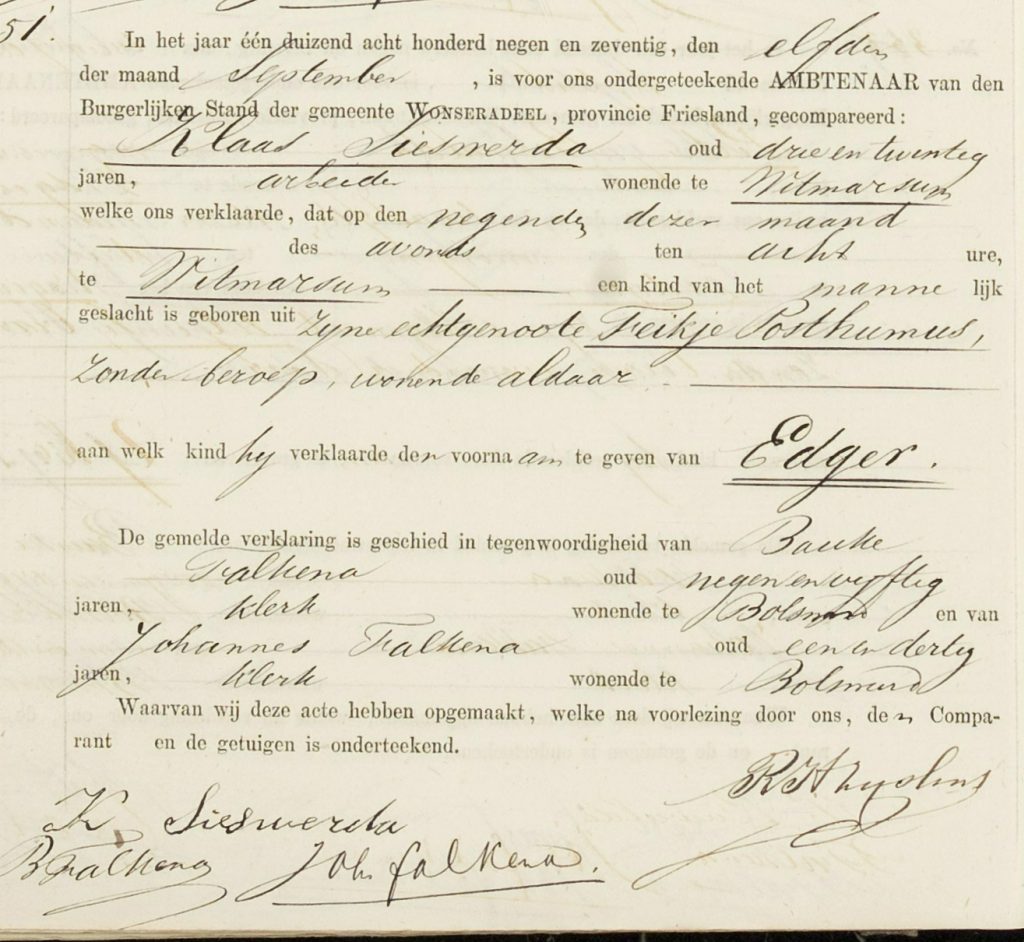 51.
In het jaar één duizend acht honderd negen en zeventig, den elfden
der maand September , is voor ons ondergeteekende AMBTENAAR van den
Burgerlijken Stand der gemeente WONSERADEEL, provincie Friesland, gecompareerd:
Klaas Sieswerda oud drie en twintig
jaren, arbeider wonende te Witmarsum
welke ons verklaarde, dat op den negenden dezer maand
des avonds ten acht ure,
te Witmarsum een kind van het manne lijk
geslacht is geboren uit zyne echtgenoote Feikje Posthumus,
zonder beroep, wonende aldaar.
aan welk kind hy verklaarde den voornaam te geven van Edger.
De gemelde verklaring is geschied in tegenwoordigheid van Bauke
Falkena oud negen en vyftig
jaren, klerk wonende te Bolsward en van
Johannes Falkena oud een en dertig
jaren, klerk wonende te Bolsward
Waarvan wij deze acte hebben opgemaakt, welke na voorlezing door ons, den Compa-
rant en de getuigen is onderteekend.
K. Sieswerda
B Falkena Joh falkena.